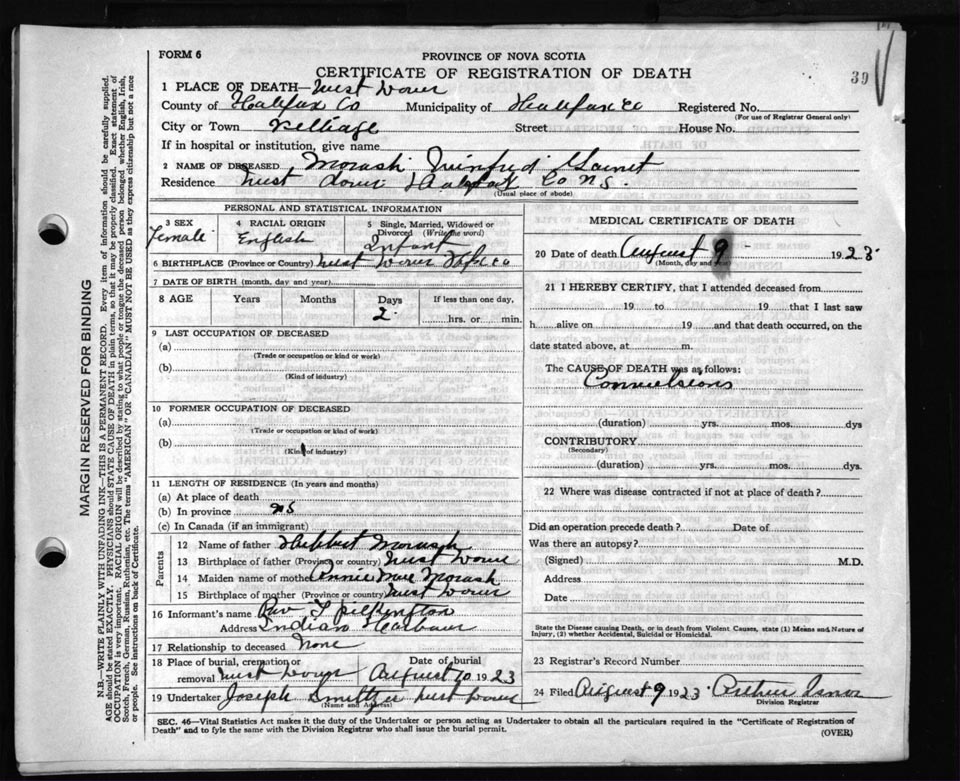 FORM 6
PROVINCE OF NOVA SCOTIA
39
CERTIFICATE OF REGISTRATION OF DEATH
1 PLACE OF DEATH—West Dover
County of Halifax Co Municipality of Halifax Co Registered No.
(For use of Registrar General only)
City or Town Village Street House No.
If in hospital or institution, give name
2 NAME OF DECEASED Morash Winifred
Residence West Dover Halifax Co NS.
(Usual place of abode)
PERSONAL AND STATISTICAL INFORMATION
3 SEX
Female
4 RACIAL ORIGIN
English
5 Single, Married, Widowed or Divorced (Write the word)
Infant
6 BIRTHPLACE (Province or Country) West Dover Hfx Co
7 DATE OF BIRTH (month, day and year)
8 AGE Years Months Days If less than one day,
2 hrs. or min.
9 LAST OCCUPATION OF DECEASED
(a)
(Trade or occupation or kind or work)
(b)
(Kind of industry)
10 FORMER OCCUPATION OF DECEASED
(a)
(Trade or occupation or kind of work)
(b)
(Kind of industry)
11 LENGTH OF RESIDENCE (In years and months)
(a) At place of death
(b) In province NS
(c) In Canada (if an immigrant)
Parents
12 Name of father Morash
13 Birthplace of father (Province or country) West Dover
14 Maiden name of mother Annie Mae Morash
15 Birthplace of mother (Province or country) West Dover
16 Informant's name Rev T Pilkington
Address Indian Harbour
17 Relationship to deceased None
18 Place of burial, cremation or removal West Dover
Date of burial August 10 1923
19 Undertaker Joseph West Dover
(Name and Address)
MEDICAL CERTIFICATE OF DEATH
20 Date of death August 9 1923
(Month, day and year)
21 I HEREBY CERTIFY, that I attended deceased from
19 to 19 that I last saw
h alive on 19 and that death occurred, on the
date stated above, at m.
The CAUSE OF DEATH was as follows:
Convulsions
(duration) yrs. mos. dys.
CONTRIBUTORY
(Secondary)
(duration) yrs. mos. dys.
22 Where was disease contracted if not at place of death?
Did an operation precede death? Date of
Was there an autopsy?
(Signed) M.D.
Address
Date
State the Disease causing Death, or in death from Violent Causes, state (1) Means and Nature of
Injury, (2) whether Accidental, Suicidal or Homicidal.
23 Registrar's Record Number
24 Filed August 9 1923 Arthur Isnor
Division Registrar
SEC. 46—Vital Statistics Act makes it the duty of the Undertaker or person acting as Undertaker to obtain all the particulars required in the "Certificate of Registration of
Death" and to fyle the same with the Division Registrar who shall issue the burial permit.
(OVER)
MARGIN RESERVED FOR BINDING
N.B.—WRITE PLAINLY WITH UNFADING INK—THIS IS A PERMANENT RECORD. Every item of information should be carefully supplied.
AGE should be stated EXACTLY. PHYSICIANS should STATE CAUSE OF DEATH in plain terms, so that it may be properly classified. Exact statement of
OCCUPATION is very important. RACIAL ORIGIN will be described by stating to what people or tongue the deceased person belonged whether English, Irish,
Scotch, French, German, Russian, Ruthenian, etc. The terms "AMERICAN" OR "CANADIAN" MUST NOT BE USED as they express citizenship but not a race
or people. See instructions on back of Certificate.